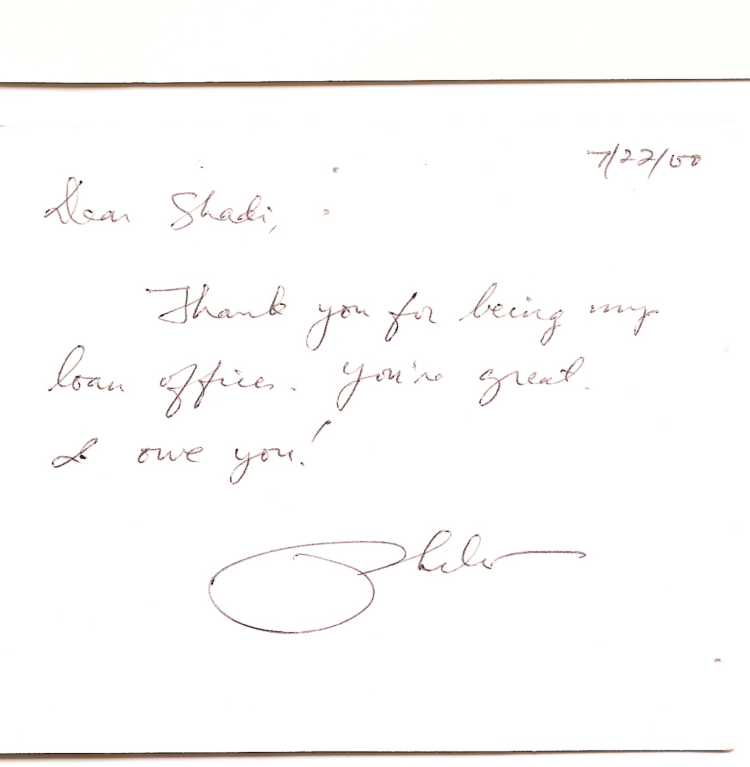 7/22/00
Dear Shadi,
Thank you for being my
loan officer. You're great.
I owe you!